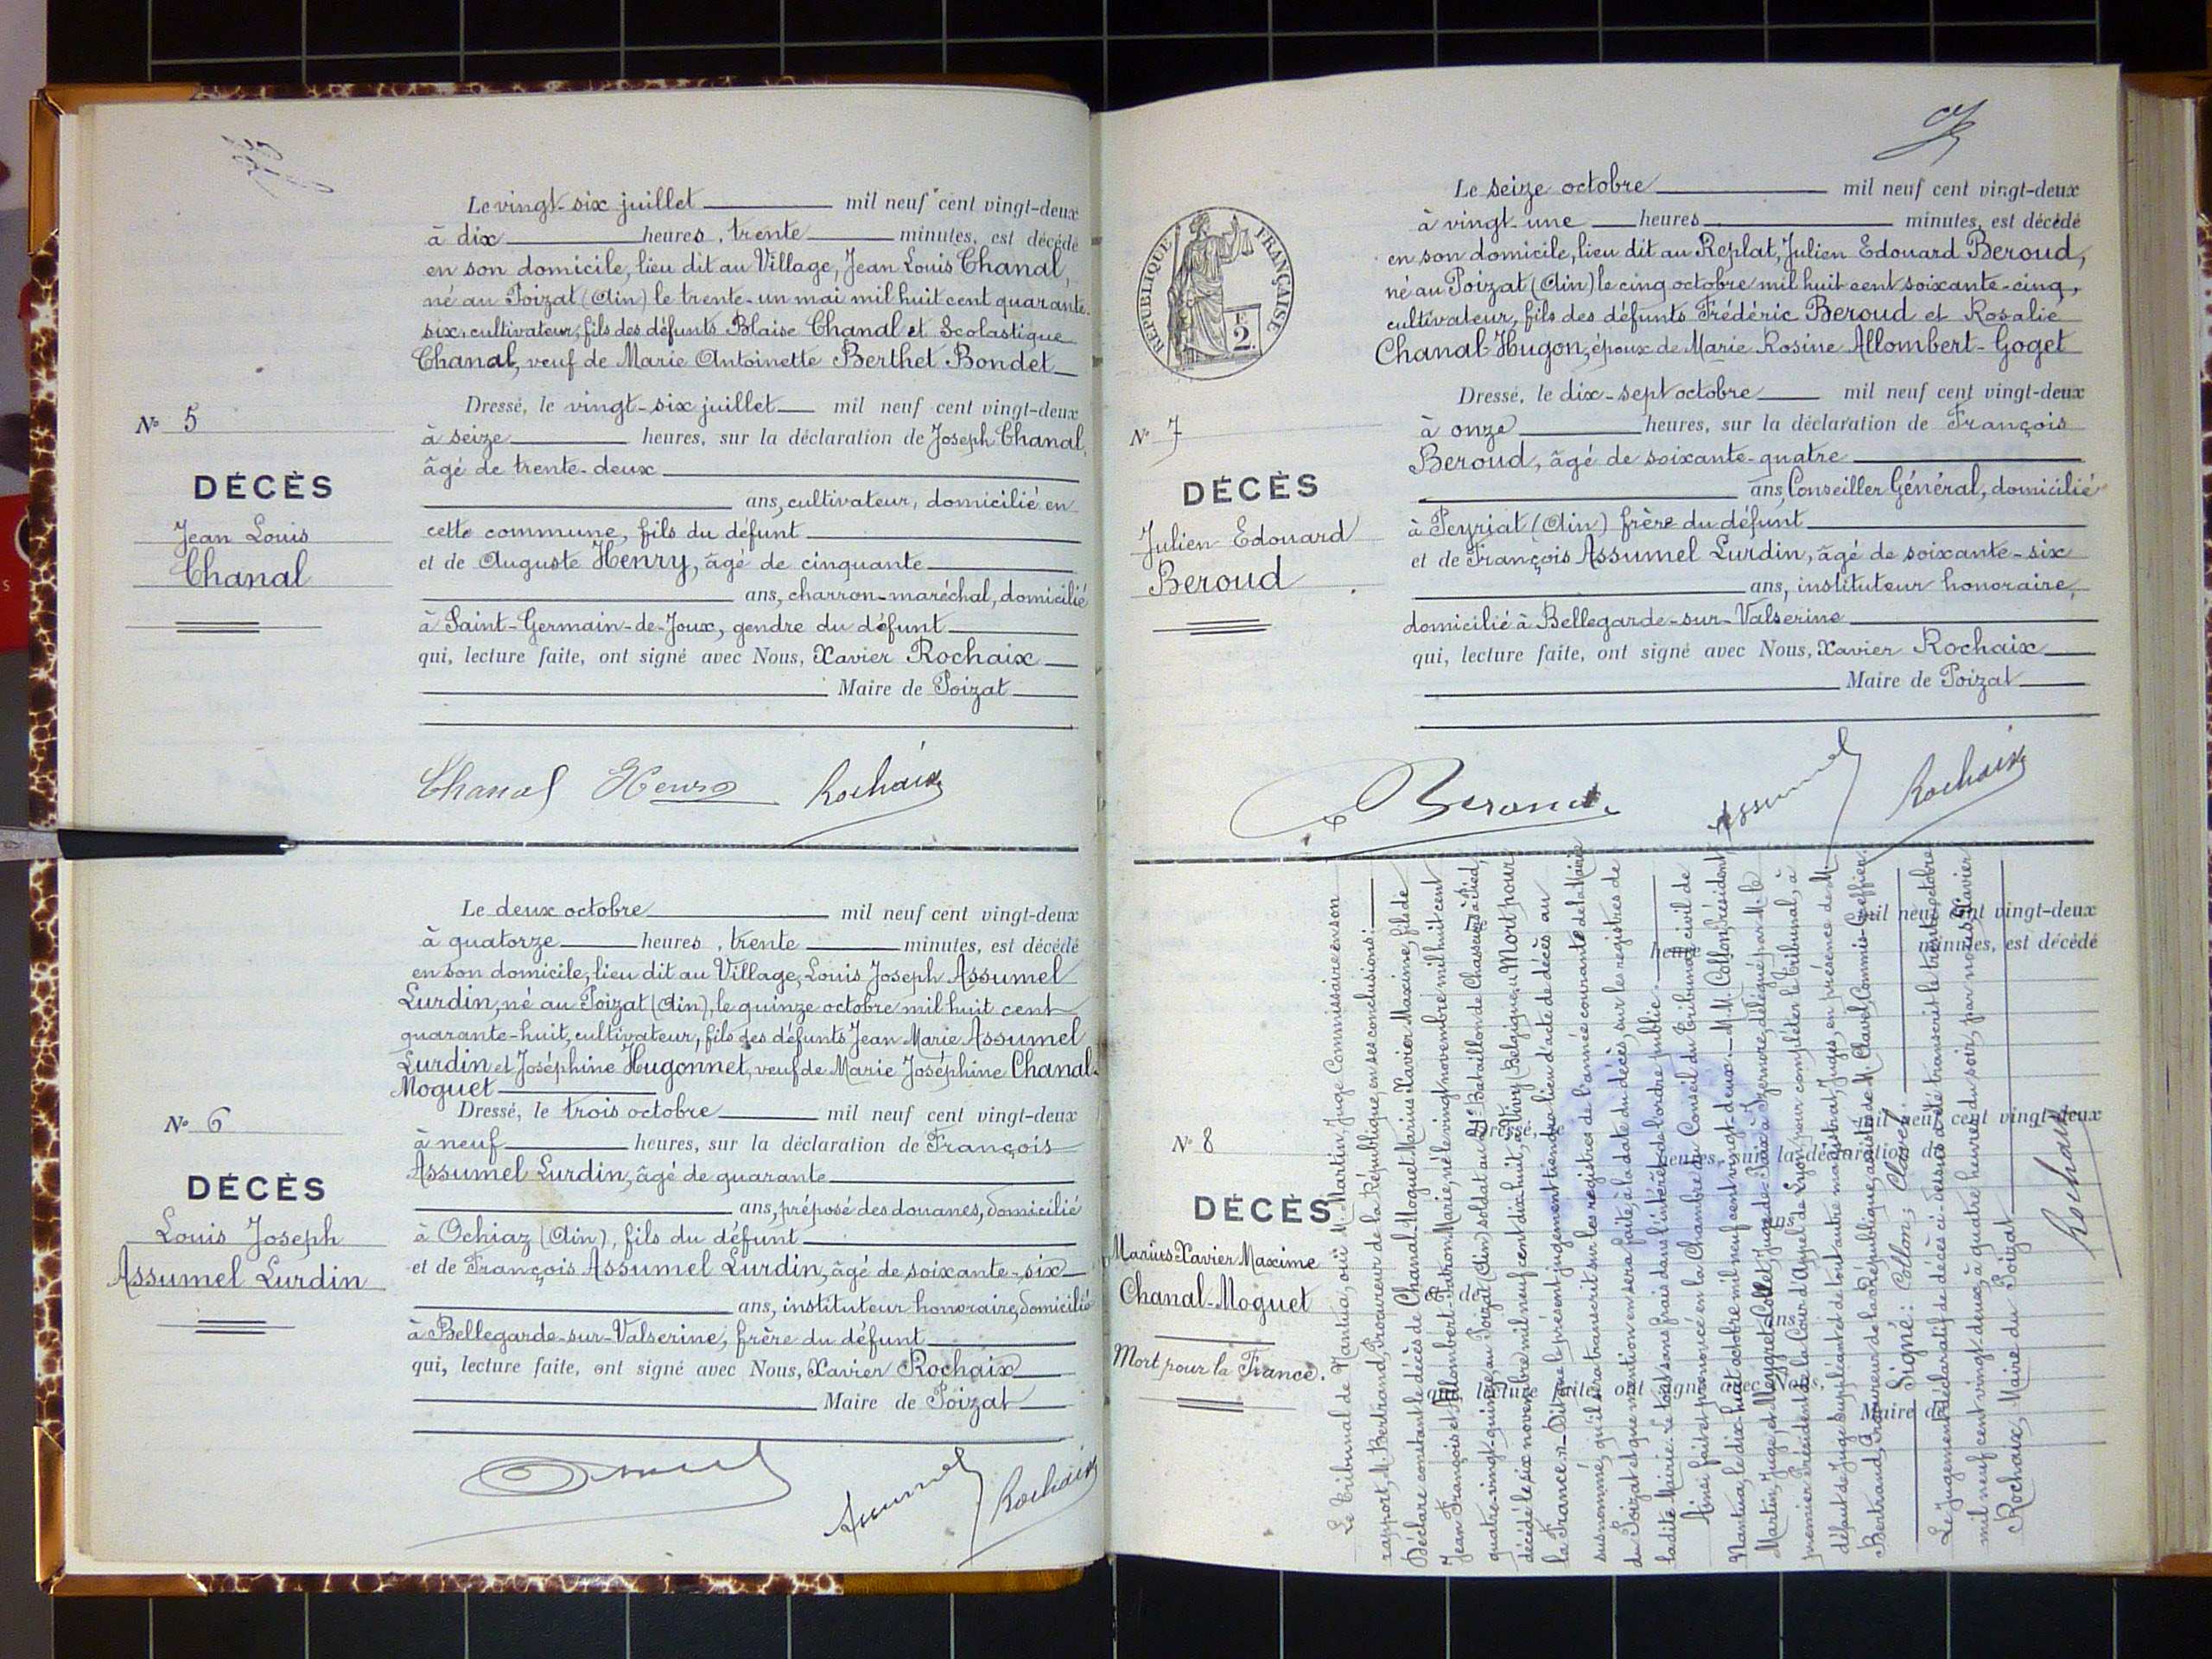 Le vingt-six juillet mil neuf cent vingt-deux
à dix heures, trente minutes, est décédé
en son domicile, lieu dit au Village, Jean Louis Chanal,
né au Poizat (Ain) le trente-un mai mil huit cent quarante-
six, cultivateur, fils des défunts Blaise Chanal et Scolastique
Chanal, veuf de Marie Antoinette Berthet Bondet
Dressé, le vingt-six juillet mil neuf cent vingt-deux
à seize heures, sur la déclaration de Joseph Chanal,
âgé de trente-deux
ans, cultivateur, domicilié en
cette commune, fils du défunt
et de Auguste Henry, âgé de cinquante
ans, charron-maréchal, domicilié
à Saint-Germain-de-Joux, gendre du défunt
qui, lecture faite, ont signé avec Nous, Xavier Rochaix
Maire de Poizat
N° 5
DÉCÈS
Jean Louis
Chanal
Chanal Henry Rochaix
Le deux octobre mil neuf cent vingt-deux
à quatorze heures, trente minutes, est décédé
en son domicile, lieu dit au Village, Louis Joseph Assumel
Lurdin, né au Poizat (Ain), le quinze octobre mil huit cent
quarante-huit, cultivateur, fils des défunts Jean Marie Assumel
Lurdin et Joséphine Hugonnet, veuf de Marie Joséphine Chanal-
Moguet
Dressé, le trois octobre mil neuf cent vingt-deux
à neuf heures, sur la déclaration de François
Assumel Lurdin, âgé de quarante
ans, préposé des douanes, domicilié
à Ochiaz (Ain), fils du défunt
et de François Assumel Lurdin, âgé de soixante-six
ans, instituteur honoraire, domicilié
à Bellegarde-sur-Valserine, frère du défunt
qui, lecture faite, ont signé avec Nous, Xavier Rochaix
Maire de Poizat
N° 6
DÉCÈS
Louis Joseph
Assumel Lurdin
Assumel Rochaix
RÉPUBLIQUE FRANÇAISE
2
Le seize octobre mil neuf cent vingt-deux
à vingt une heures minutes, est décédé
en son domicile, lieu dit au Replat, Julien Edouard Beroud,
né au Poizat (Ain) le cinq octobre mil huit cent soixante-cinq,
cultivateur, fils des défunts Frédéric Beroud et Rosalie
Chanal Hugon, époux de Marie Rosine Allombert-Goget
Dressé, le dix-sept octobre mil neuf cent vingt-deux
à onze heures, sur la déclaration de François
Beroud, âgé de soixante-quatre
ans, Conseiller Général, domicilié
à Peyriat (Ain) frère du défunt
et de François Assumel Lurdin, âgé de soixante-six
ans, instituteur honoraire,
domicilié à Bellegarde-sur-Valserine
qui, lecture faite, ont signé avec Nous, Xavier Rochaix
Maire de Poizat
N° 7
DÉCÈS
Julien Edouard
Beroud
Beroud Assumel Rochaix
N° 8
DÉCÈS
Marius-Xavier Maxime
Chanal-Moguet
Mort pour la France.
Le Tribunal de Nantua, ouï M. Martin, Juge Commissaire en son
rapport, M. Bertrand, Procureur de la République, en ses conclusions:
Déclare constant le décès de Chanal-Moguet Marius Xavier Maxime, fils de
Jean François et de Allombert-Patron Marie, né le vingt novembre mil huit cent
quatre-vingt-quinze, au Poizat (Ain) soldat au Bataillon de Chasseurs à Pied,
décédé le six novembre mil neuf cent dix huit, à Wivry (Belgique), "Mort pour
la France". – Dit que le présent jugement tiendra lieu d'acte de décès au
susnommé, qu'il sera transcrit sur les registres de l'année courante de la Mairie
du Poizat et que mention en sera faite, à la date du décès, sur les registres de
ladite Mairie. Le tout sans frais dans l'intérêt de l'ordre public.
Ainsi fait et prononcé en la Chambre du Conseil du Tribunal civil de
Nantua, le dix-huit octobre mil neuf cent vingt-deux. – M.M. Collon, Président,
Martin, Juge, et Meygret-Collet, Juge de Paix à Izernore, délégué par M. le
premier Président de la Cour d'Appel de Lyon, pour compléter le Tribunal, à
défaut de Juge suppléant et de tout autre magistrat, Juges, en présence de M.
Bertrand, Procureur de la République, assistés de M. Clavel, Commis-Greffier.
Signé: Collon; Clavel.
Le Jugement déclaratif de décès ci-dessus a été transcrit le trente octobre
mil neuf cent vingt-deux, à quatre heures du soir, par nous, Xavier
Rochaix, Maire du Poizat
Rochaix
mil neuf cent vingt-deux
heures minutes, est décédé
Dressé, mil neuf cent vingt-deux
heures, sur la déclaration de
ans
et de
ans
qui, lecture faite, ont signé avec Nous,
Maire de